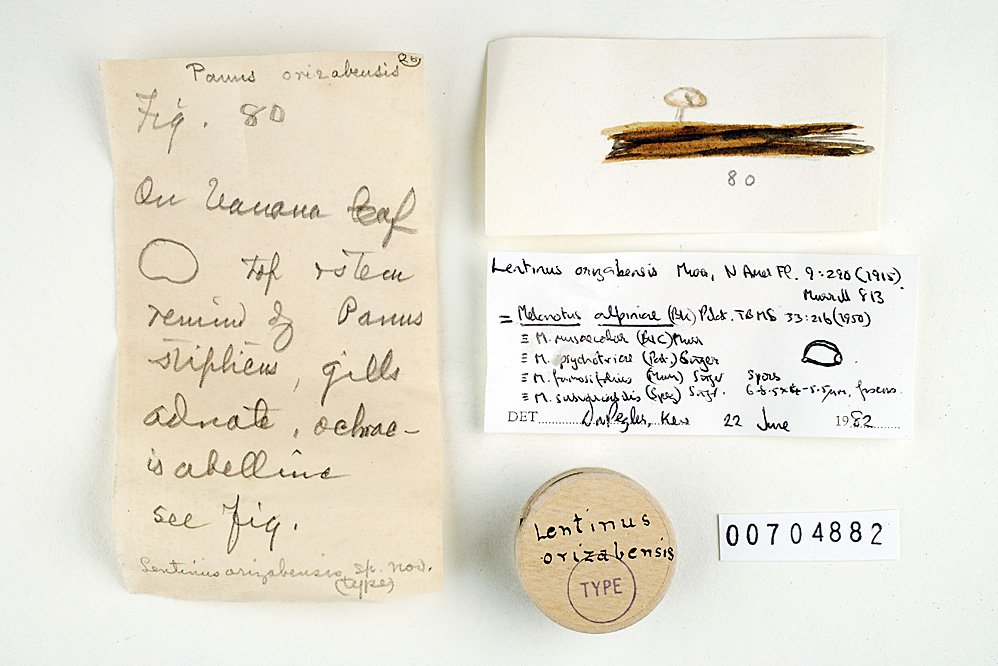 25
Panus orizabensis
Fig. 80
On banana leaf
top & stem
remind of Panus
stipticus, gills
adnate, ochrac-
isabelline
see fig.
Lentinus orizabensis sp. nov.
(type)
80
Lentinus orizabensis Murr, N Amer Fl. 9:290 (1915).
Murrill 813
= Melanotus alpiniae (Bk) Pilát. TBMS 33:216 (1950)
≡ M. musaecolor (B&C) Murr
≡ M. psychotriae (Pat.) Singer
≡ M. fumosifolius (Murr) Singer
≡ M. (Speg) Singer.
Spores
6-6.5 x 4-5.5µm, fuscous.
DET. D.N. Pegler, Kew 22 June 1982
Lentinus
orizabensis
TYPE
00704882